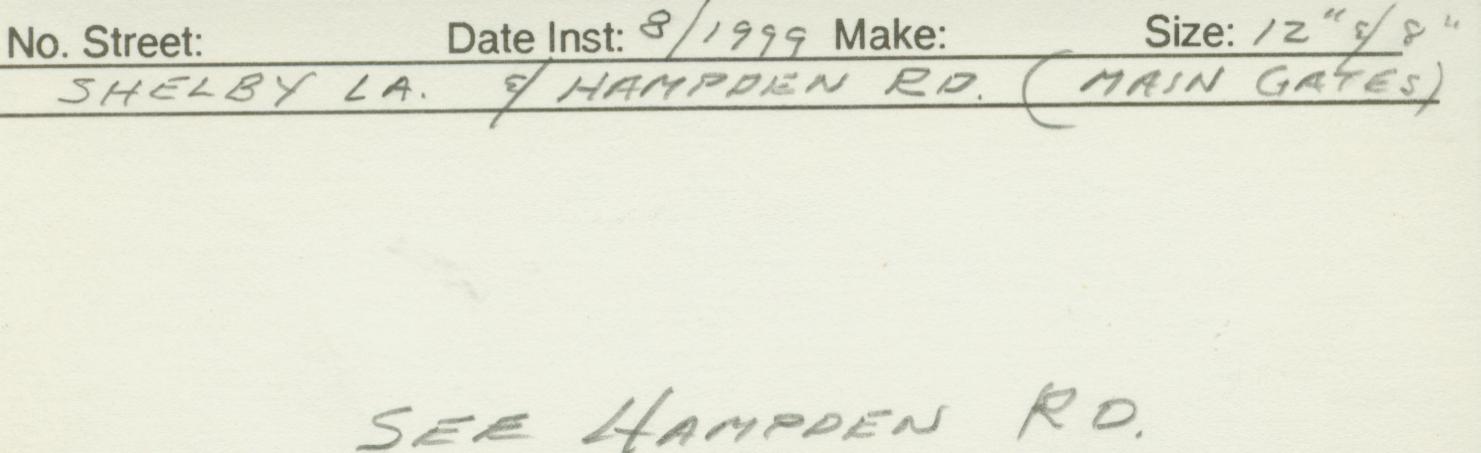 No. Street: Date Inst: 8/1999 Make: Size: 12" & 8"
SHELBY LA. & HAMPDEN RD. (MAIN GATES)
SEE HAMPDEN RD.